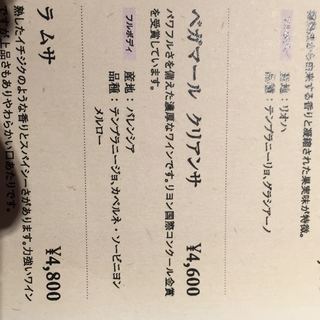 産地：リオハ
品種：テンプラニーリョ、グラシアーノ
ベガマール クリアンサ ¥4,600
パワフルさを備えた濃厚なワインです。リヨン国際コンクール金賞
を受賞しています。
フルボディ
産地：バレンシア
品種：テンプラニーリョ、カベルネ・ソービニヨン
メルロー
ラ ムサ ¥4,800
熟したイチジクのような香りとスパイシーさがあります。力強いワイン
ですが上品さもありやわらかい口あたりです。